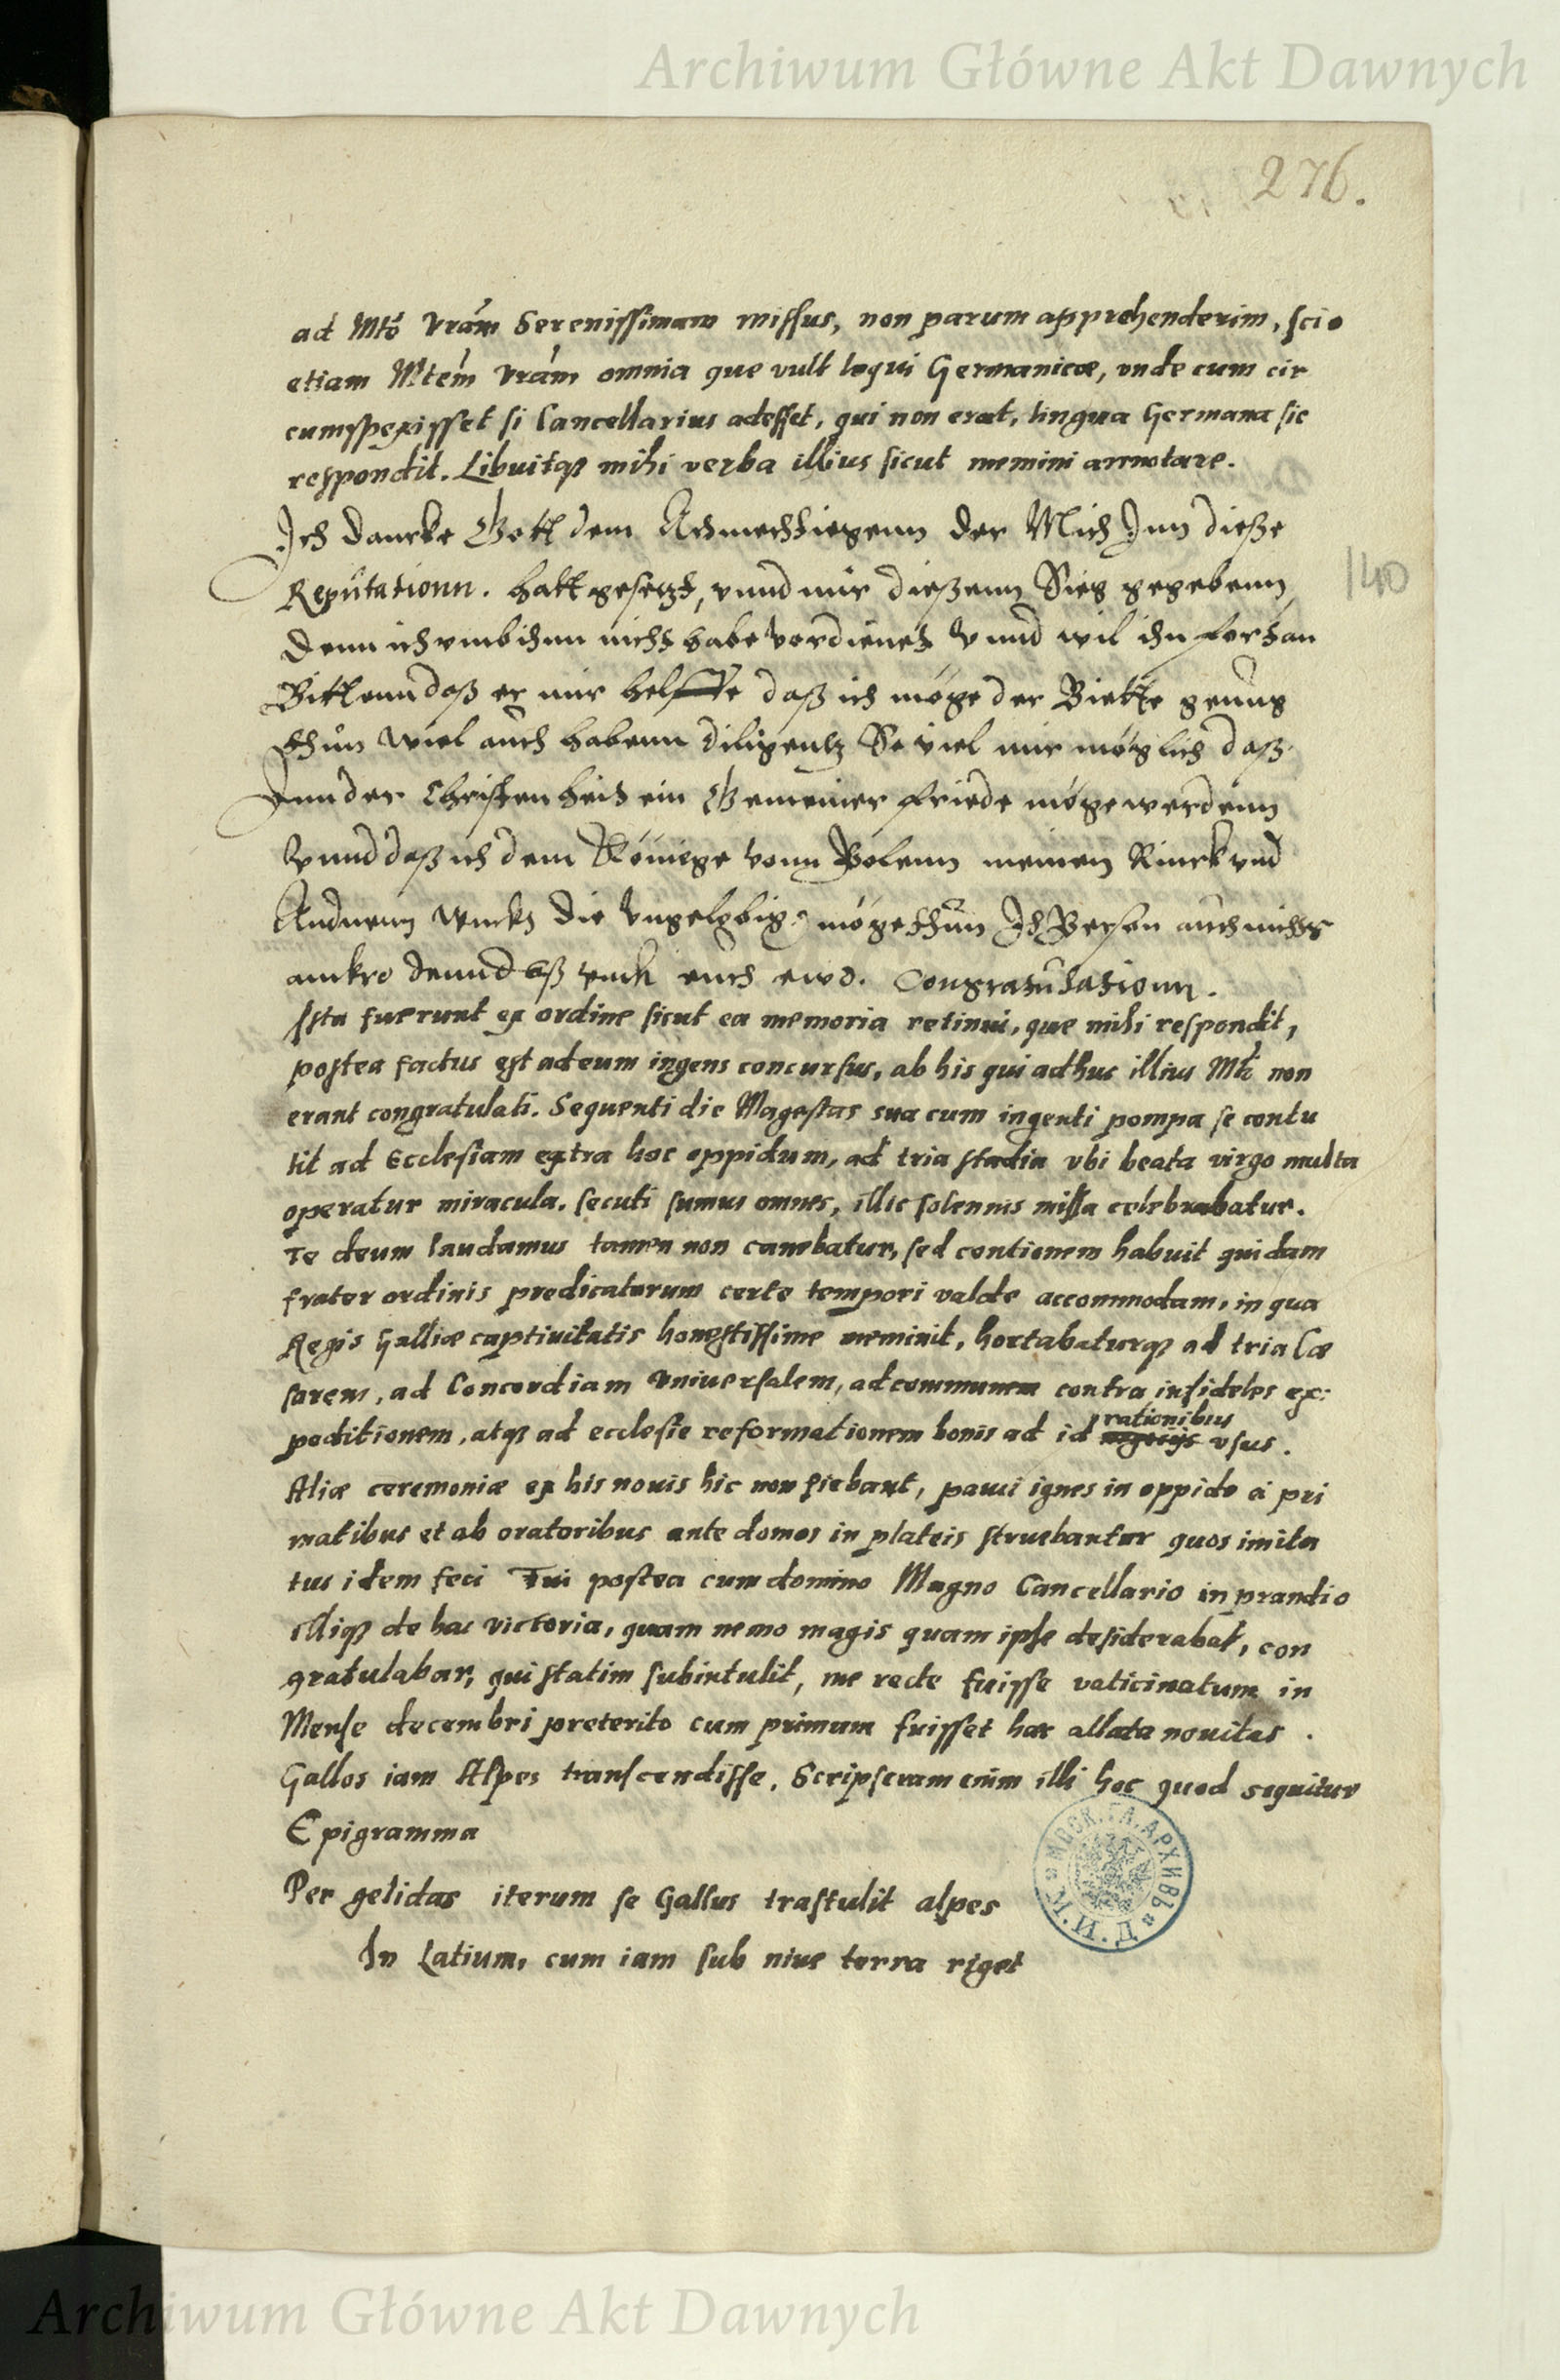 Archiwum Główne Akt Dawnych
276.
ad Mtẽ Vrãm Serenissimam missus, non parum apprehenderim, scio
etiam Mtem̃ Vrãm omnia que vult loqui Germanicæ, vnde cum cir
cumspexisset si Cancellarius adesset, qui non erat, lingua Germana sic
respondit. Libuitqꝫ mihi verba illius sicut memini annotare.
Ich dancke Gott dem Almechtiegenn der Mich Inn dieße
Reputationn. hatt gesetzt, vnnd mir dießenn Sieg gegebenn
140
denn ich vmb ihnn nicht habe verdienet Vnnd wil ihn forthan
Bittenn daß er mir helffe daß ich möge der Biette genug
thun wiel auch habenn diligentz So viel mir möglich daß
Inn der Christenheit ein Gemeiner friede möge werdenn
Vnnd daß ich dem Köniege vonn Polenn meinen
die möge thun auch nichts
Congratulationn.
Ista fuerunt ex ordine sicut ea memoria retinui, que mihi respondit,
postea factus est ad eum ingens concursus, ab his qui adhuc illius Mti non
erant congratulati. Sequenti die Magestas sua cum ingenti pompa se contu
lit ad Ecclesiam extra hoc oppidum, ad tria stadia vbi beata virgo multa
operatur miracula. secuti sumus omnes, illic solennis missa celebrabatur.
Te deum laudamus tamen non canebatur, sed contionem habuit quidam
frater ordinis predicatorum certe tempori valde accommodam, in qua
Regis Galliæ captiuitatis honestissime meminit, hortabaturqꝫ ad tria Cæ
sarem, ad Concordiam Vniuersalem, ad communem contra infideles ex:
peditionem, atqꝫ ad ecclesie reformationem bonis ad id rationibus vsus.
Aliæ ceremoniæ ex his nouis hic non fiebant, pauci ignes in oppido a pri
matibus et ab oratoribus ante domos in plateis struebantur quos imita
tus idem feci Fui postea cum domino Magno Cancellario in prandio
illiqꝫ de hac victoria, quam nemo magis quam ipse desiderabat, con
gratulabar, qui statim subintulit, me recte fuisse vaticinatum in
Mense decembri preterito cum primum fuisset hac allata nouitas .
Gallos iam Alpes transcendisse. Scripseram enim illi hoc quod sequitur
Epigramma
Per gelidas iterum se Gallus trastulit alpes
In Latium, cum iam sub niue terra riget
МОСК. ГЛ. АРХИВЪ М.И.Д.
Archiwum Główne Akt Dawnych